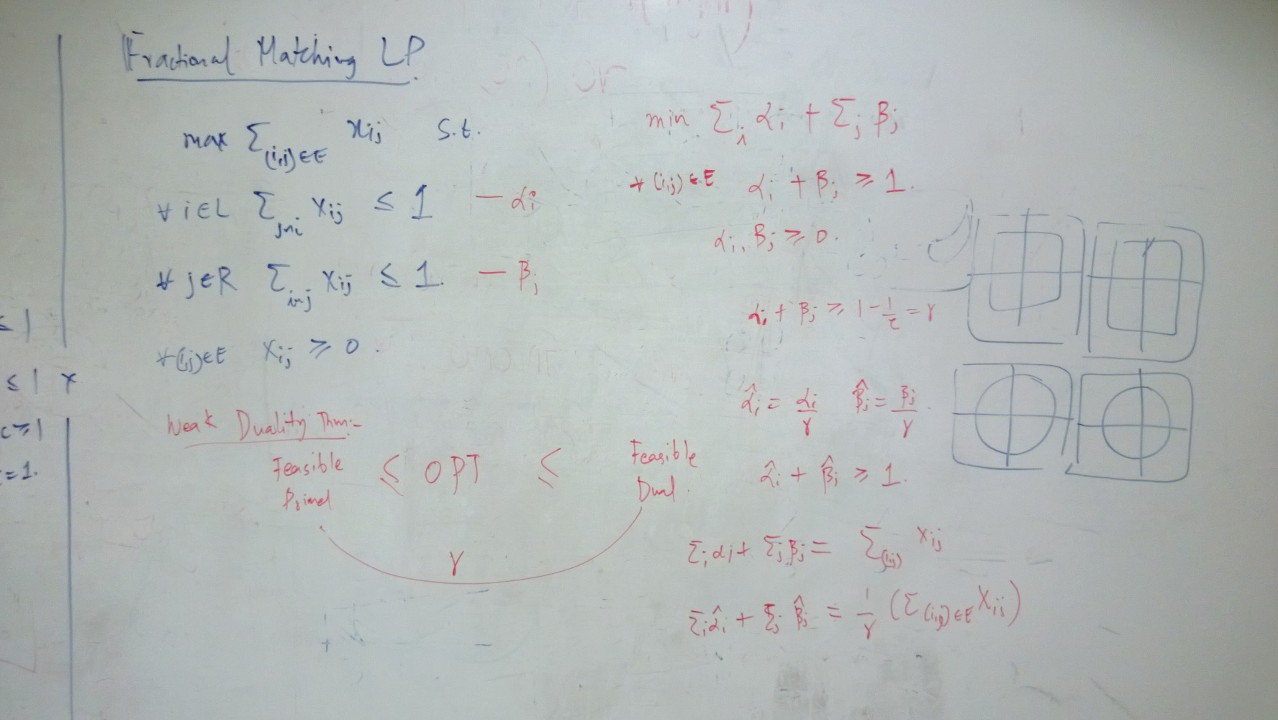 Fractional Matching LP
max Σ_{(i,j)∈E} x_{ij} s.t.
∀ i∈L Σ_{j~i} x_{ij} ≤ 1 — α_i
∀ j∈R Σ_{i~j} x_{ij} ≤ 1. — β_j
∀(i,j)∈E x_{ij} ≥ 0.
Weak Duality Thm:-
Feasible Primal ≤ OPT ≤ Feasible Dual.
γ
min Σ_i α_i + Σ_j β_j
∀ (i,j)∈E α_i + β_j ≥ 1.
α_i, β_j ≥ 0.
α_i + β_j ≥ 1 - 1/e = γ
α̂_i = α_i/γ β̂_j = β_j/γ
α̂_i + β̂_j ≥ 1.
Σ_i α_i + Σ_j β_j = Σ_{(i,j)} x_{ij}
Σ_i α̂_i + Σ_j β̂_j = 1/γ (Σ_{(i,j)∈E} x_{ij})
≤ 1
≤ 1
≥ 1
= 1.